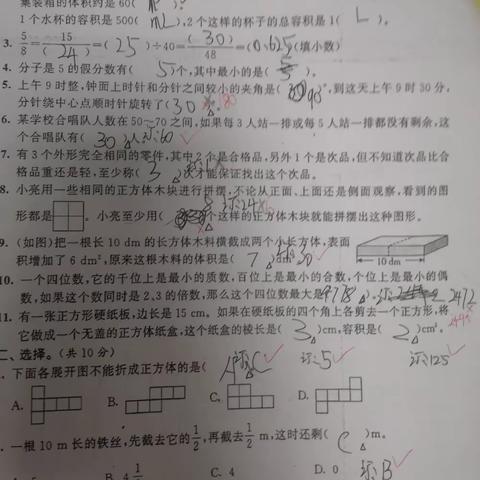 集装箱的体积约是60( )。
1个水杯的容积是500( mL ),2个这样的杯子的总容积是1( L )。
3. 5/8 = 15/( 24 ) = ( 25 )÷40 = ( 30 )/48 = ( 0.625 )(填小数)
4. 分子是5的假分数有( 5 )个,其中最小的是( 5/5 )。
5. 上午9时整,钟面上时针和分针之间较小的夹角是( 90° ),到这天上午9时30分,
分针绕中心点顺时针旋转了( 30 )。 180
6. 某学校合唱队人数在50~70之间,如果每3人站一排或每5人站一排都没有剩余,这
个合唱队有( 30 )人 订:60
7. 有3个外形完全相同的零件,其中2个是合格品,另外1个是次品,但不知道次品比合
格品重还是轻,至少称( 3 )次才能保证找出这个次品。
8. 小亮用一些相同的正方体木块进行拼摆,不论从正面、上面还是侧面观察,看到的图
形都是 。小亮至少用( 8 )个这样的正方体木块就能拼摆出这种图形。 订:24 6
9. (如图)把一根长10 dm的长方体木料横截成两个小长方体,表面
积增加了6 dm²,原来这根木料的体积是( 7 ) 订:30
10 dm
10. 一个四位数,它的千位上是最小的质数,百位上是最小的合数,个位上是最小的偶
数,如果这个数同时是2、3的倍数,那么这个四位数最大是 9778 订: 2472
11. 有一张正方形硬纸板,边长是15 cm。如果在硬纸板的四个角上各剪去一个正方形,将
它做成一个无盖的正方体纸盒,这个纸盒的棱长是( 3 )cm,容积是( 2 )cm³。
订:5 订:125
二、选择。(共10分)
. 下面各展开图不能折成正方体的是( A 订:C
A. B. C. D.
. 一根10 m长的铁丝,先截去它的1/2,再截去1/2 m,这时还剩( C )m。
B. 4 1/2 C. 4 D. 0 订:B